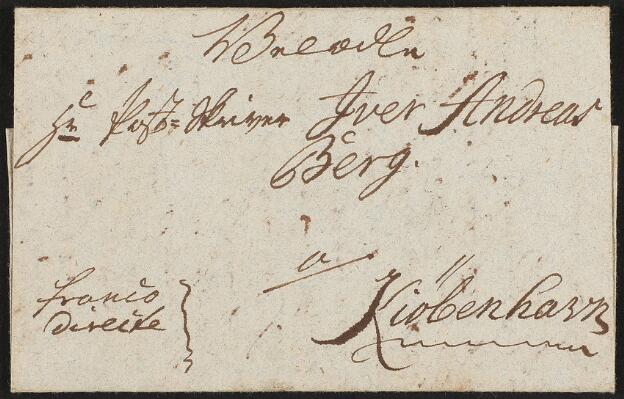 Velædle
Hr Post=Skriver Iver Andreas
Berg.
a
Kiöbenhavn
franco
directe